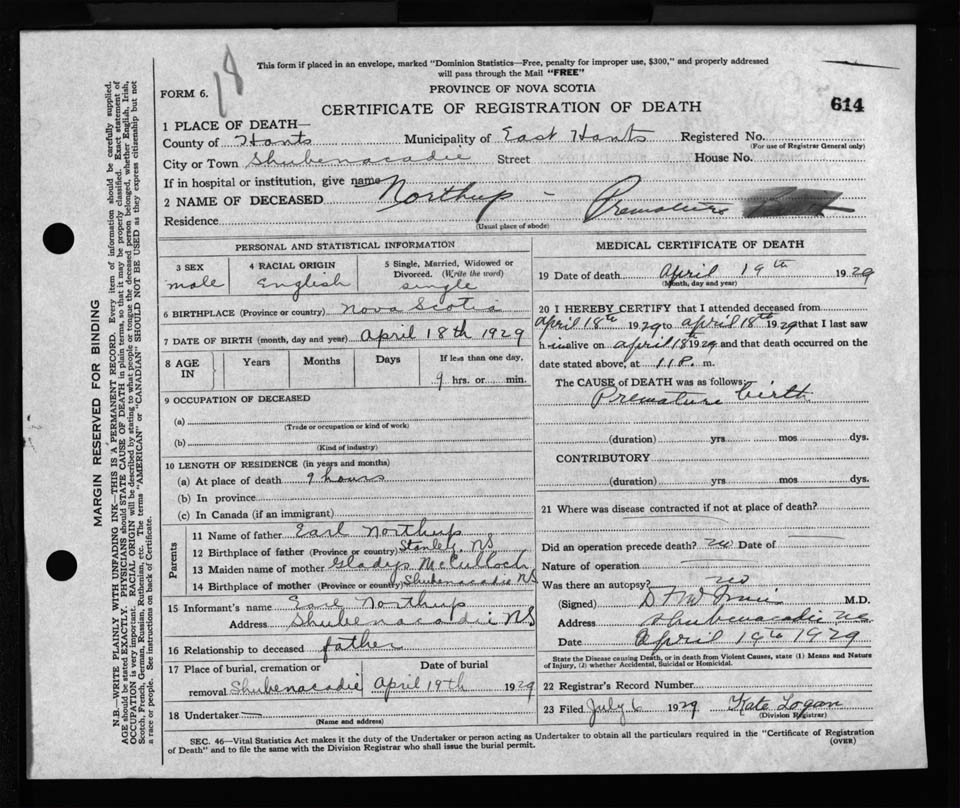 18
This form if placed in an envelope, marked "Dominion Statistics—Free, penalty for improper use, $300," and properly addressed
will pass through the Mail "FREE"
FORM 6.
PROVINCE OF NOVA SCOTIA
CERTIFICATE OF REGISTRATION OF DEATH
614
1 PLACE OF DEATH—
County of Hants Municipality of East Hants Registered No.
(For use of Registrar General only)
City or Town Shubenacadie Street House No.
If in hospital or institution, give name
2 NAME OF DECEASED Northup - Premature
Residence
(Usual place of abode)
PERSONAL AND STATISTICAL INFORMATION
3 SEX male
4 RACIAL ORIGIN English
5 Single, Married, Widowed or Divorced. (Write the word) single
6 BIRTHPLACE (Province or country) Nova Scotia
7 DATE OF BIRTH (month, day and year) April 18th 1929
8 AGE IN Years Months Days If less than one day, 9 hrs. or min.
9 OCCUPATION OF DECEASED
(a)
(Trade or occupation or kind of work)
(b)
(Kind of industry)
10 LENGTH OF RESIDENCE (in years and months)
(a) At place of death 9 hours
(b) In province
(c) In Canada (if an immigrant)
Parents
11 Name of father Earl Northup
12 Birthplace of father (Province or country) Stanley, NS
13 Maiden name of mother Gladys McCulloch
14 Birthplace of mother (Province or country) Shubenacadie NS
15 Informant's name Earl Northup
Address Shubenacadie NS
16 Relationship to deceased father
17 Place of burial, cremation or removal Shubenacadie
Date of burial April 19th 1929
18 Undertaker —
(Name and address)
MEDICAL CERTIFICATE OF DEATH
19 Date of death April 19th 1929
(Month, day and year)
20 I HEREBY CERTIFY that I attended deceased from
April 18th 1929 to April 18th 1929 that I last saw
h alive on April 18 1929 and that death occurred on
date stated above, at 11 P. m.
The CAUSE of DEATH was as follows:
Premature birth
(duration) yrs mos dys.
CONTRIBUTORY
(duration) yrs mos dys.
21 Where was disease contracted if not at place of death?
Did an operation precede death? no Date of
Nature of operation
Was there an autopsy? no
(Signed) M.D.
Address Shubenacadie NS
Date April 19th 1929
State the Disease causing Death, or in death from Violent Causes, state (1) Means and Nature
of Injury, (2) whether Accidental, Suicidal or Homicidal.
22 Registrar's Record Number
23 Filed July 6 1929 Kate Logan
(Division Registrar)
SEC. 46—Vital Statistics Act makes it the duty of the Undertaker or person acting as Undertaker to obtain all the particulars required in the "Certificate of Registration
of Death" and to file the same with the Division Registrar who shall issue the burial permit.
(OVER)
MARGIN RESERVED FOR BINDING
N.B.—WRITE PLAINLY WITH UNFADING INK—THIS IS A PERMANENT RECORD. Every item of information should be carefully supplied.
AGE should be stated EXACTLY. PHYSICIANS should STATE CAUSE OF DEATH in plain terms, so that it may be properly classified. Exact statement of
OCCUPATION is very important. RACIAL ORIGIN will be described by stating to what people or tongue the deceased person belonged, whether English, Irish,
Scotch, French, German, Russian, Ruthenian, etc. The terms "AMERICAN" or "CANADIAN" SHOULD NOT BE USED as they express citizenship but not
a race or people. See instructions on back of Certificate.